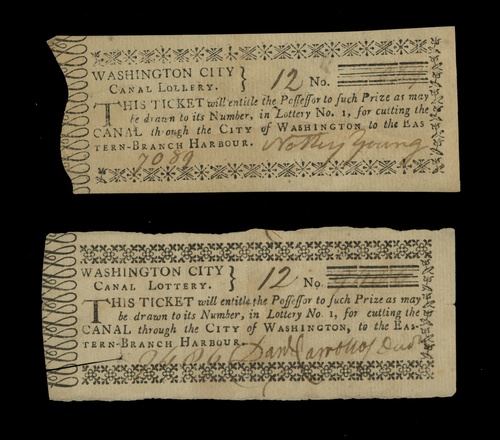 WASHINGTON CITY } 12 No.
CANAL LOLLERY.
THIS TICKET will entitle the Poſſeſſor to ſuch Prize as may
be drawn to its Number, in Lottery No. 1, for cutting the
CANAL through the CITY OF WASHINGTON to the EAS-
TERN-BRANCH HARBOUR. Notley Young
7089
WASHINGTON CITY } 12 No
CANAL LOTTERY.
THIS TICKET will entitle the Poſſeſſor to ſuch Prize as may
be drawn to its Number, in Lottery No. 1, for cutting the
CANAL through the CITY OF WASHINGTON, to the EAS-
TERN-BRANCH HARBOUR.
Danl Carroll of Dudn